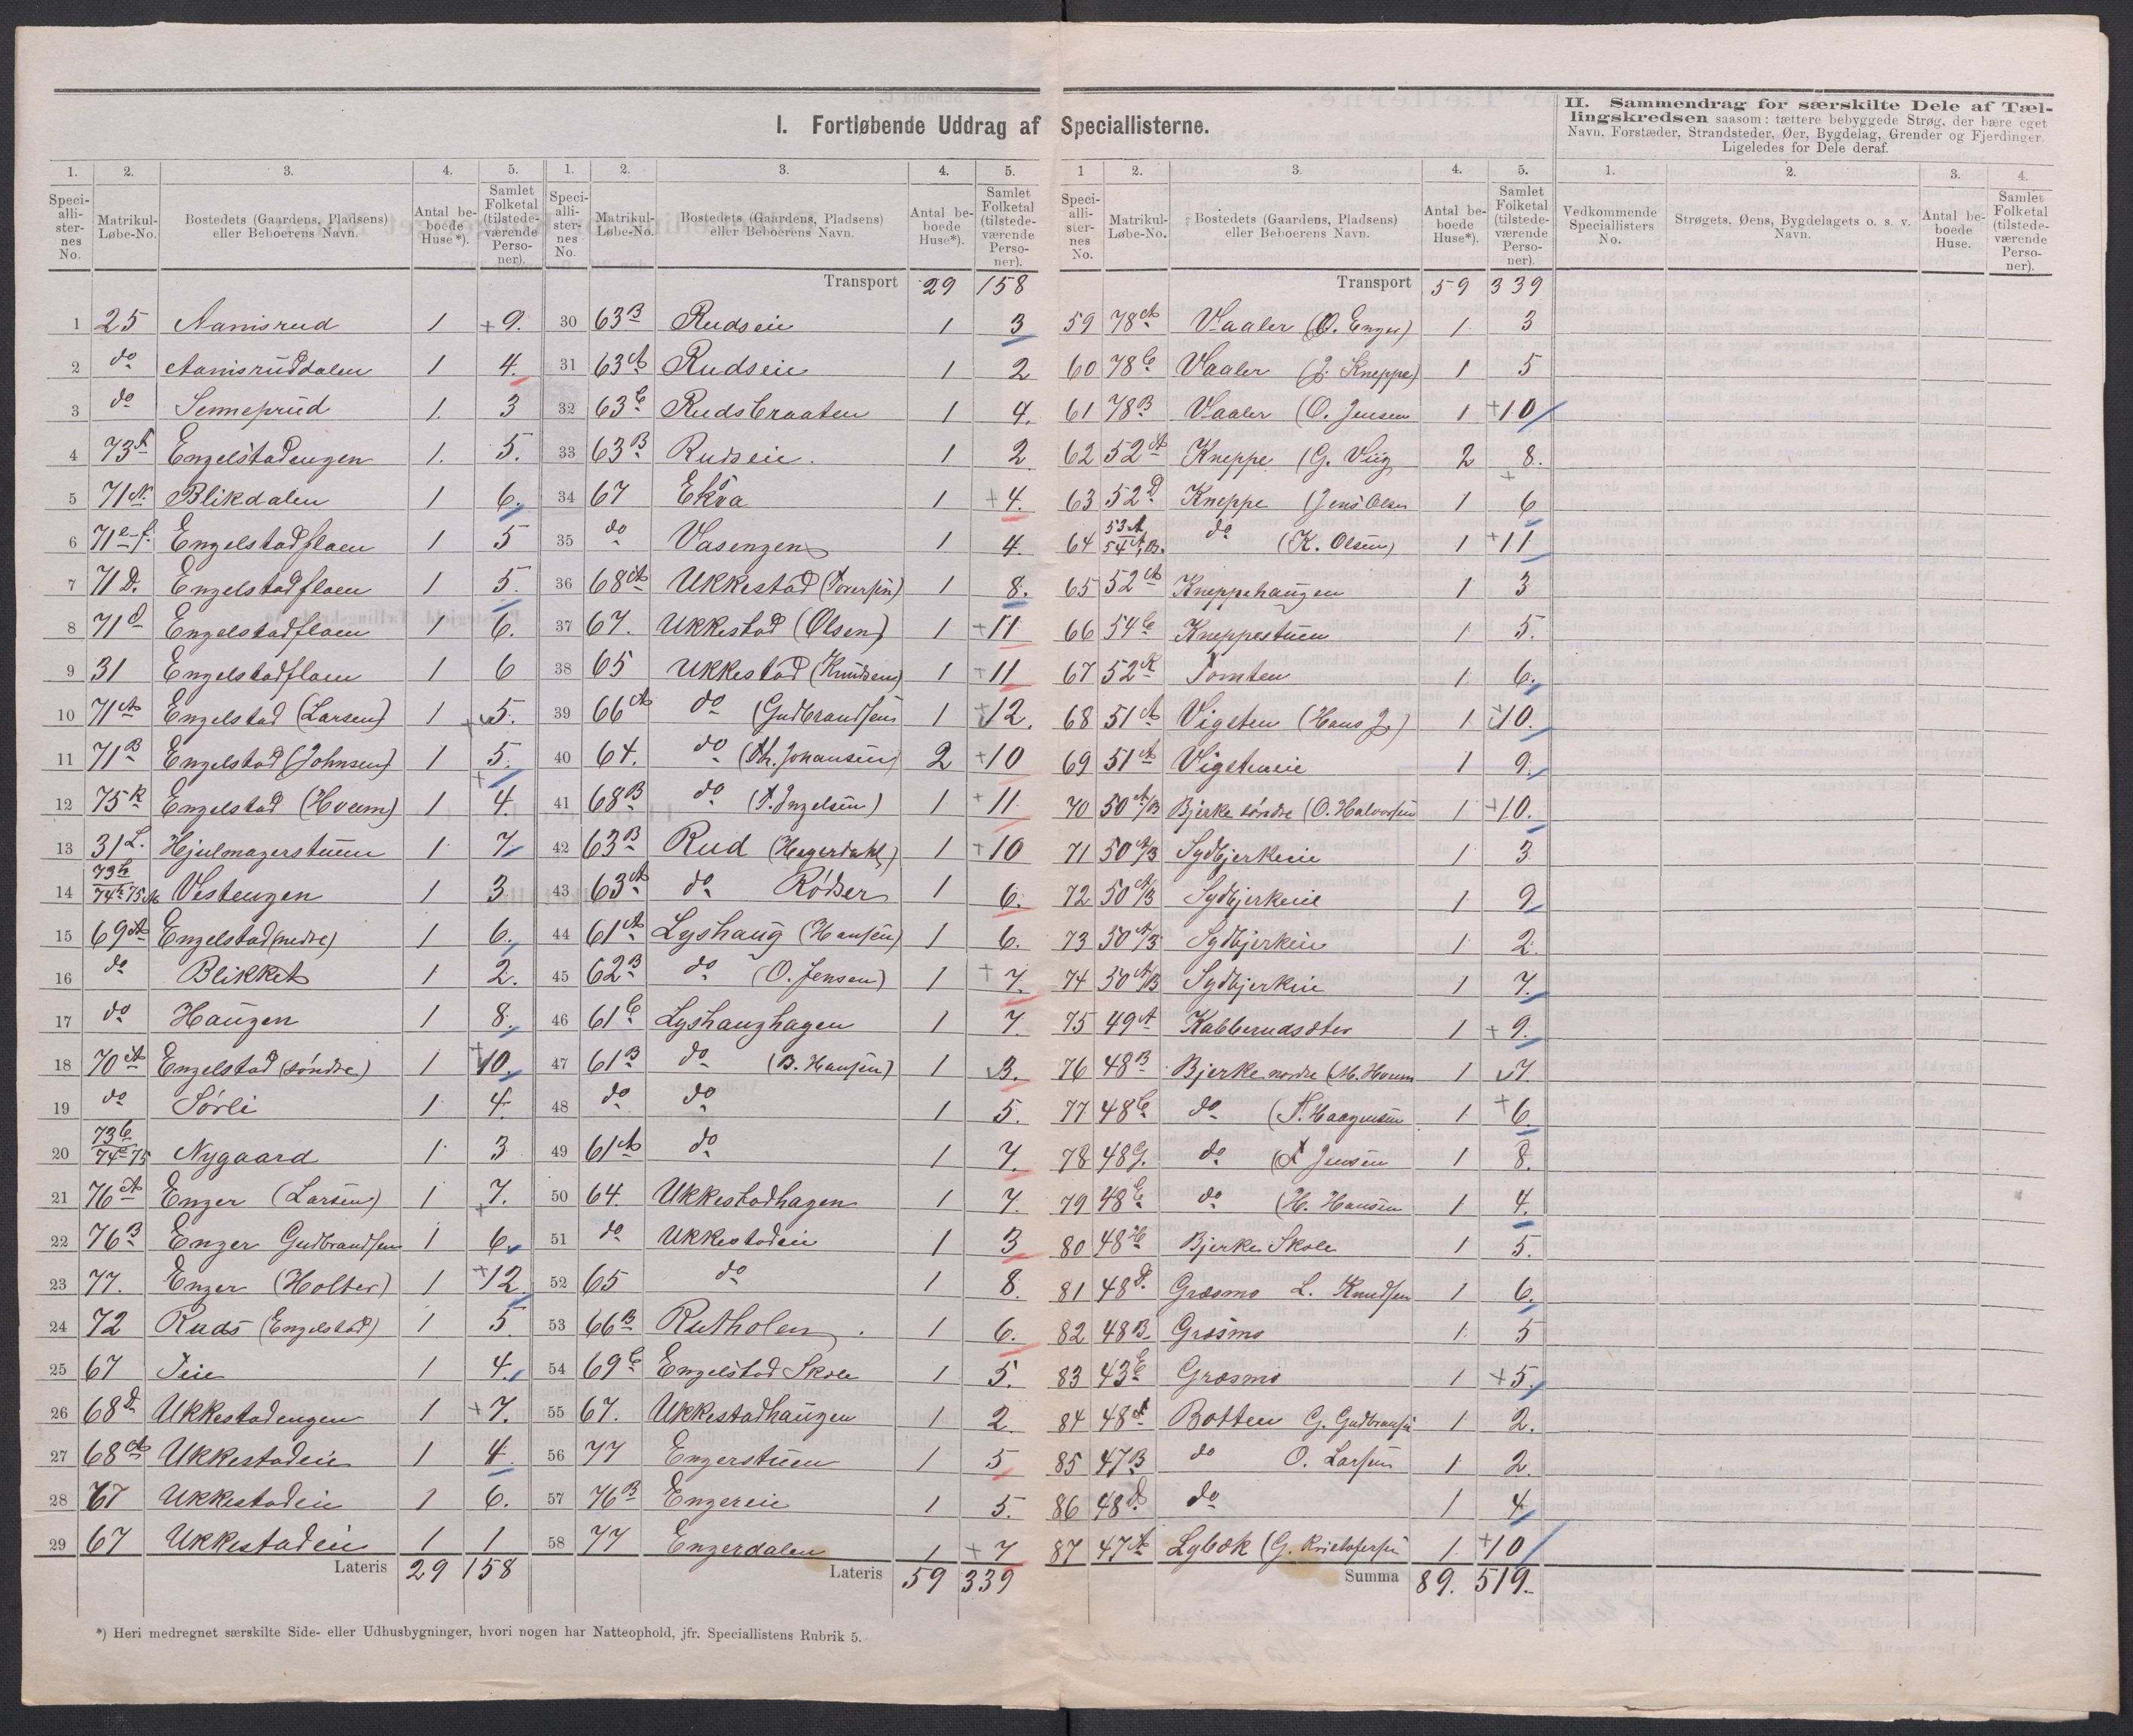 I. Fortløbende Uddrag af Speciallisterne.
II. Sammendrag for særskilte Dele af Tæl-
lingskredsen saasom: tættere bebyggede Strøg, der bære eget
Navn, Forstæder, Strandsteder, Øer, Bygdelag, Grender og Fjerdinger.
Ligeledes for Dele deraf.
1. 2. 3. 4. 5.
Speci-
alli-
ster-
nes
No.
Matrikul-
Løbe-No.
Bostedets (Gaardens, Pladsens)
eller Beboerens Navn.
Antal be-
boede
Huse*).
Samlet
Folketal
(tilstede-
værende
Perso-
ner).
1 25 Aamsrud 1 9.
2 do Aamsruddalen 1 4.
3 do Senneprud 1. 3
4 73A Engelstadengen 1. 5.
5 71N Blikdalen 1 6.
6 71e-f. Engelstadflaen 1 5
7 71D. Engelstadflaen 1 5.
8 71d Engelstadflaen 1 6.
9 31 Engelstadflaen 1 6
10 71A Engelstad (Larsen) 1 5.
11 71B Engelstad (Johnsen) 1 5.
12 75K Engelstad (Hvam) 1 4.
13 31L. Hjulmagerstuen 1 7
14 73h 74h 75M Vestengen 1 3
15 69A Engelstad (nedre) 1 6.
16 do Blikket 1 2.
17 do Haugen 1 8.
18 70A Engelstad (søndre) 1 10.
19 do Sørli 1 4.
20 73C 74e 75 Nygaard 1 3
21 76A Enger (Larsen) 1 7.
22 76B Enger Gudbrandsen 1 6.
23 77. Enger (Holter) 1 12
24 72 Ruds (Engelstad) 1 5
25 67 Teie 1 4.
26 68D. Ukkestadengen 1 7.
27 68A Ukkestadeie 1 4.
28 67 Ukkestadeie 1 6.
29 67 Ukkestadeie 1 1
Lateris 29 158
*) Heri medregnet særskilte Side- eller Udhusbygninger, hvori nogen har Natteophold, jfr. Speciallistens Rubrik 5.
1. 2. 3. 4. 5.
Speci-
alli-
ster-
nes
No.
Matrikul-
Løbe-No.
Bostedets (Gaardens, Pladsens)
eller Beboerens Navn.
Antal be-
boede
Huse*).
Samlet
Folketal
(tilstede-
værende
Perso-
ner).
Transport 29 158
30 63B Rudseie 1 3
31 63A Rudseie 1 2
32 63C Rudsbraaten 1 4.
33 63B Rudseie. 1 2
34 67 Ekra 1 4.
35 do Vasengen 1 4.
36 68A Ukkestad (Iversen) 1 8.
37 67. Ukkestad (Olsen) 1 11
38 65 Ukkestad (Knudsen) 1 11
39 66A do (Gudbrandsen 1 12.
40 64. do (Th. Johansen) 2 10
41 68B do (A. Ingelsen) 1 11
42 63B Rud (Hegerdahl) 1 10
43 63A do Rødser 1 6.
44 61A Lyshaug (Hansen) 1 6.
45 62B do (O. Jensen) 1 7.
46 61C Lyshaughagen 1 7
47 61B do (B. Hansen) 1 3.
48 do do 1 5.
49 61A do 1 7.
50 64. Ukkestadhagen 1 7.
51 do Ukkestadeie 1 3
52 65 do 1 8.
53 66B Rutholen 1 6.
54 69C Engelstad Skole 1 5.
55 67. Ukkestadhaugen 1 2.
56 77 Engerstuen 1 5
57 76B Engereie 1 5.
58 77 Engerdalen 1 7
Lateris 59 339
1 2. 3. 4. 5.
Speci-
alli-
ster-
nes
No.
Matrikul-
Løbe-No.
Bostedets (Gaardens, Pladsens)
eller Beboerens Navn.
Antal be-
boede
Huse*).
Samlet
Folketal
(tilstede-
værende
Perso-
ner).
Transport 59 339
59 78A Vaaler (O. Enger) 1 3
60 78C Vaaler (J. Kneppe) 1 5
61 78B Vaaler (O. Jensen 1 10
62 52A Kneppe (G. Viig 2 8.
63 52D Kneppe (Jens Olsen 1 6
64 53A 54A,B. do (K. Olsen) 1 11
65 52A Kneppehaugen 1 3
66 54C Kneppestuen 1 5.
67 52K Tomten 1 6.
68 51A Vigsten (Hans J) 1 10.
69 51A Vigsteneie 1 9.
70 50A/B Bjerke søndre (O. Halvorsen 1 10.
71 50A/B Sydbjerkeie 1 3
72 50A/B Sydbjerkeie 1 9
73 50A/B Sydbjerkeie 1 2.
74 50A/B Sydbjerkeie 1 7.
75 49A Kabberudsæter 1 9.
76 48B Bjerke nordre (M. Hvam 1 7.
77 48C do (N. Haagensen 1 6.
78 48G. do (A Jensen 1 8.
79 48E do (H. Hansen 1 4.
80 48H Bjerke Skole 1 5.
81 48D. Græsmo L. Knudsen 1 6.
82 48B Græsmo 1 5
83 43E Græsmo 1 5.
84 48A Botten G. Gudbransen 1 2.
85 47B do O. Larsen 1 2.
86 48D do 1 4
87 47A Lybæk (G. Kristofersen 1. 10
Summa 89. 519.
1. 2. 3. 4.
Vedkommende
Speciallisters
No.
Strøgets, Øens, Bygdelagets o. s. v.
Navn.
Antal be-
boede
Huse.
Samlet
Folketal
(tilstede-
værende
Perso-
ner).